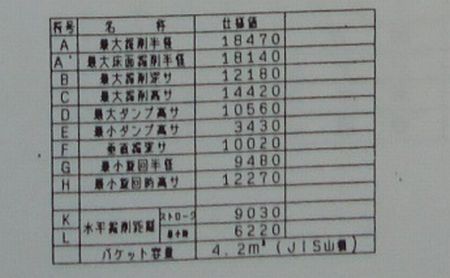 符号 名 称 仕様値
A 最大掘削半径 18470
A' 最大床面掘削半径 18140
B 最大掘削深サ 12180
C 最大掘削高サ 14420
D 最大ダンプ高サ 10560
E 最小ダンプ高サ 3430
F 垂直掘深サ 10020
G 最小旋回半径 9480
H 最小旋回時高サ 12270
K 水平掘削距離 ストローク 9030
L 最小時 6220
バケット容量 4.2m³ (JIS山積)